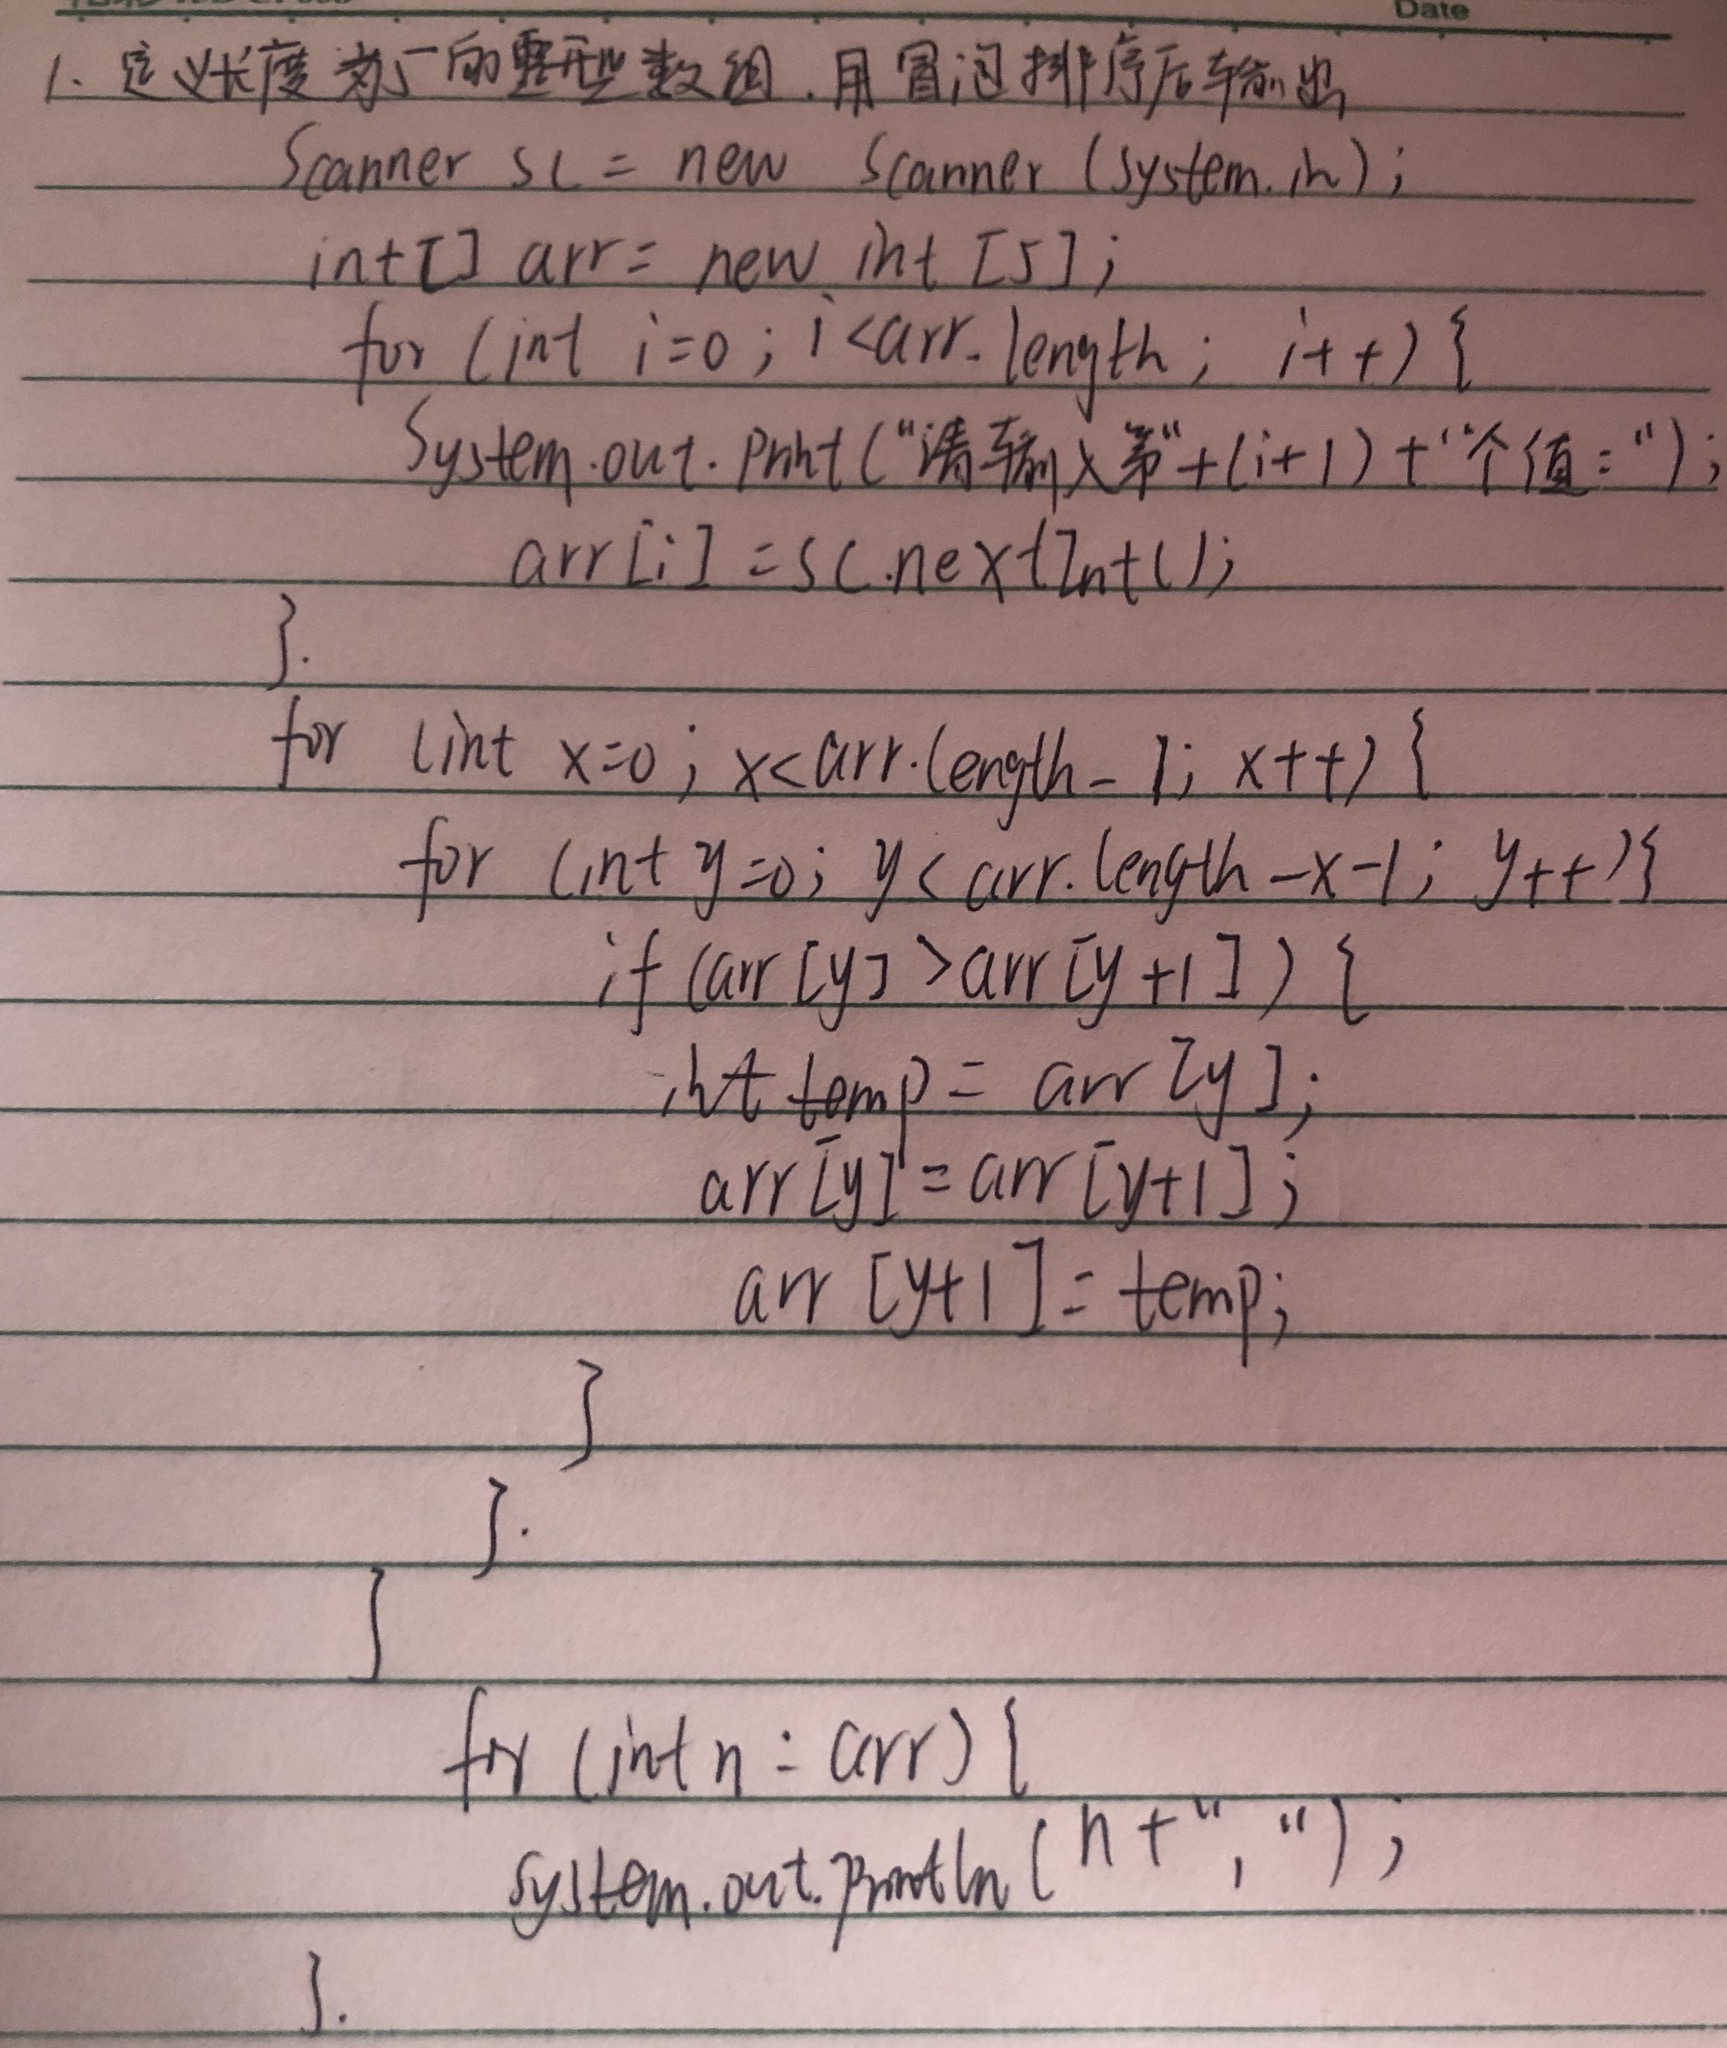 Date
1. 定义长度为5的整型数组.用冒泡排序后输出
Scanner sc = new Scanner (system.in);
int[] arr = new int [5];
for (int i=0; i<arr.length; i++) {
System.out.print("请输入第"+(i+1)+"个值:");
arr[i] = sc.nextInt();
}.
for (int x=0; x<arr.length-1; x++) {
for (int y=0; y<arr.length-x-1; y++){
if (arr[y]>arr[y+1]) {
int temp = arr[y];
arr[y] = arr[y+1];
arr[y+1] = temp;
}
}.
}
for (int n : arr) {
system.out.println(n+",");
}.